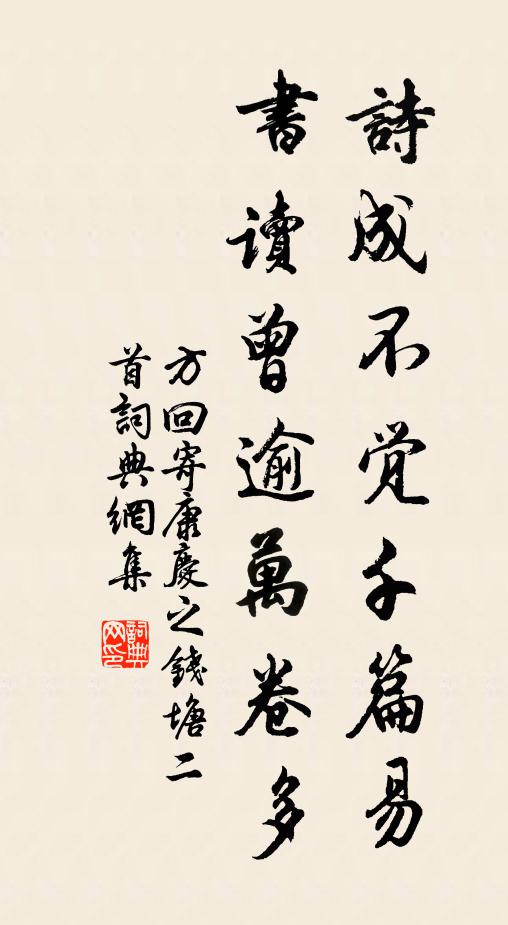 詩成不觉千篇易
書讀曾逾萬卷多
方回寄康慶之錢塘二
首詞典網集
詞典
网印